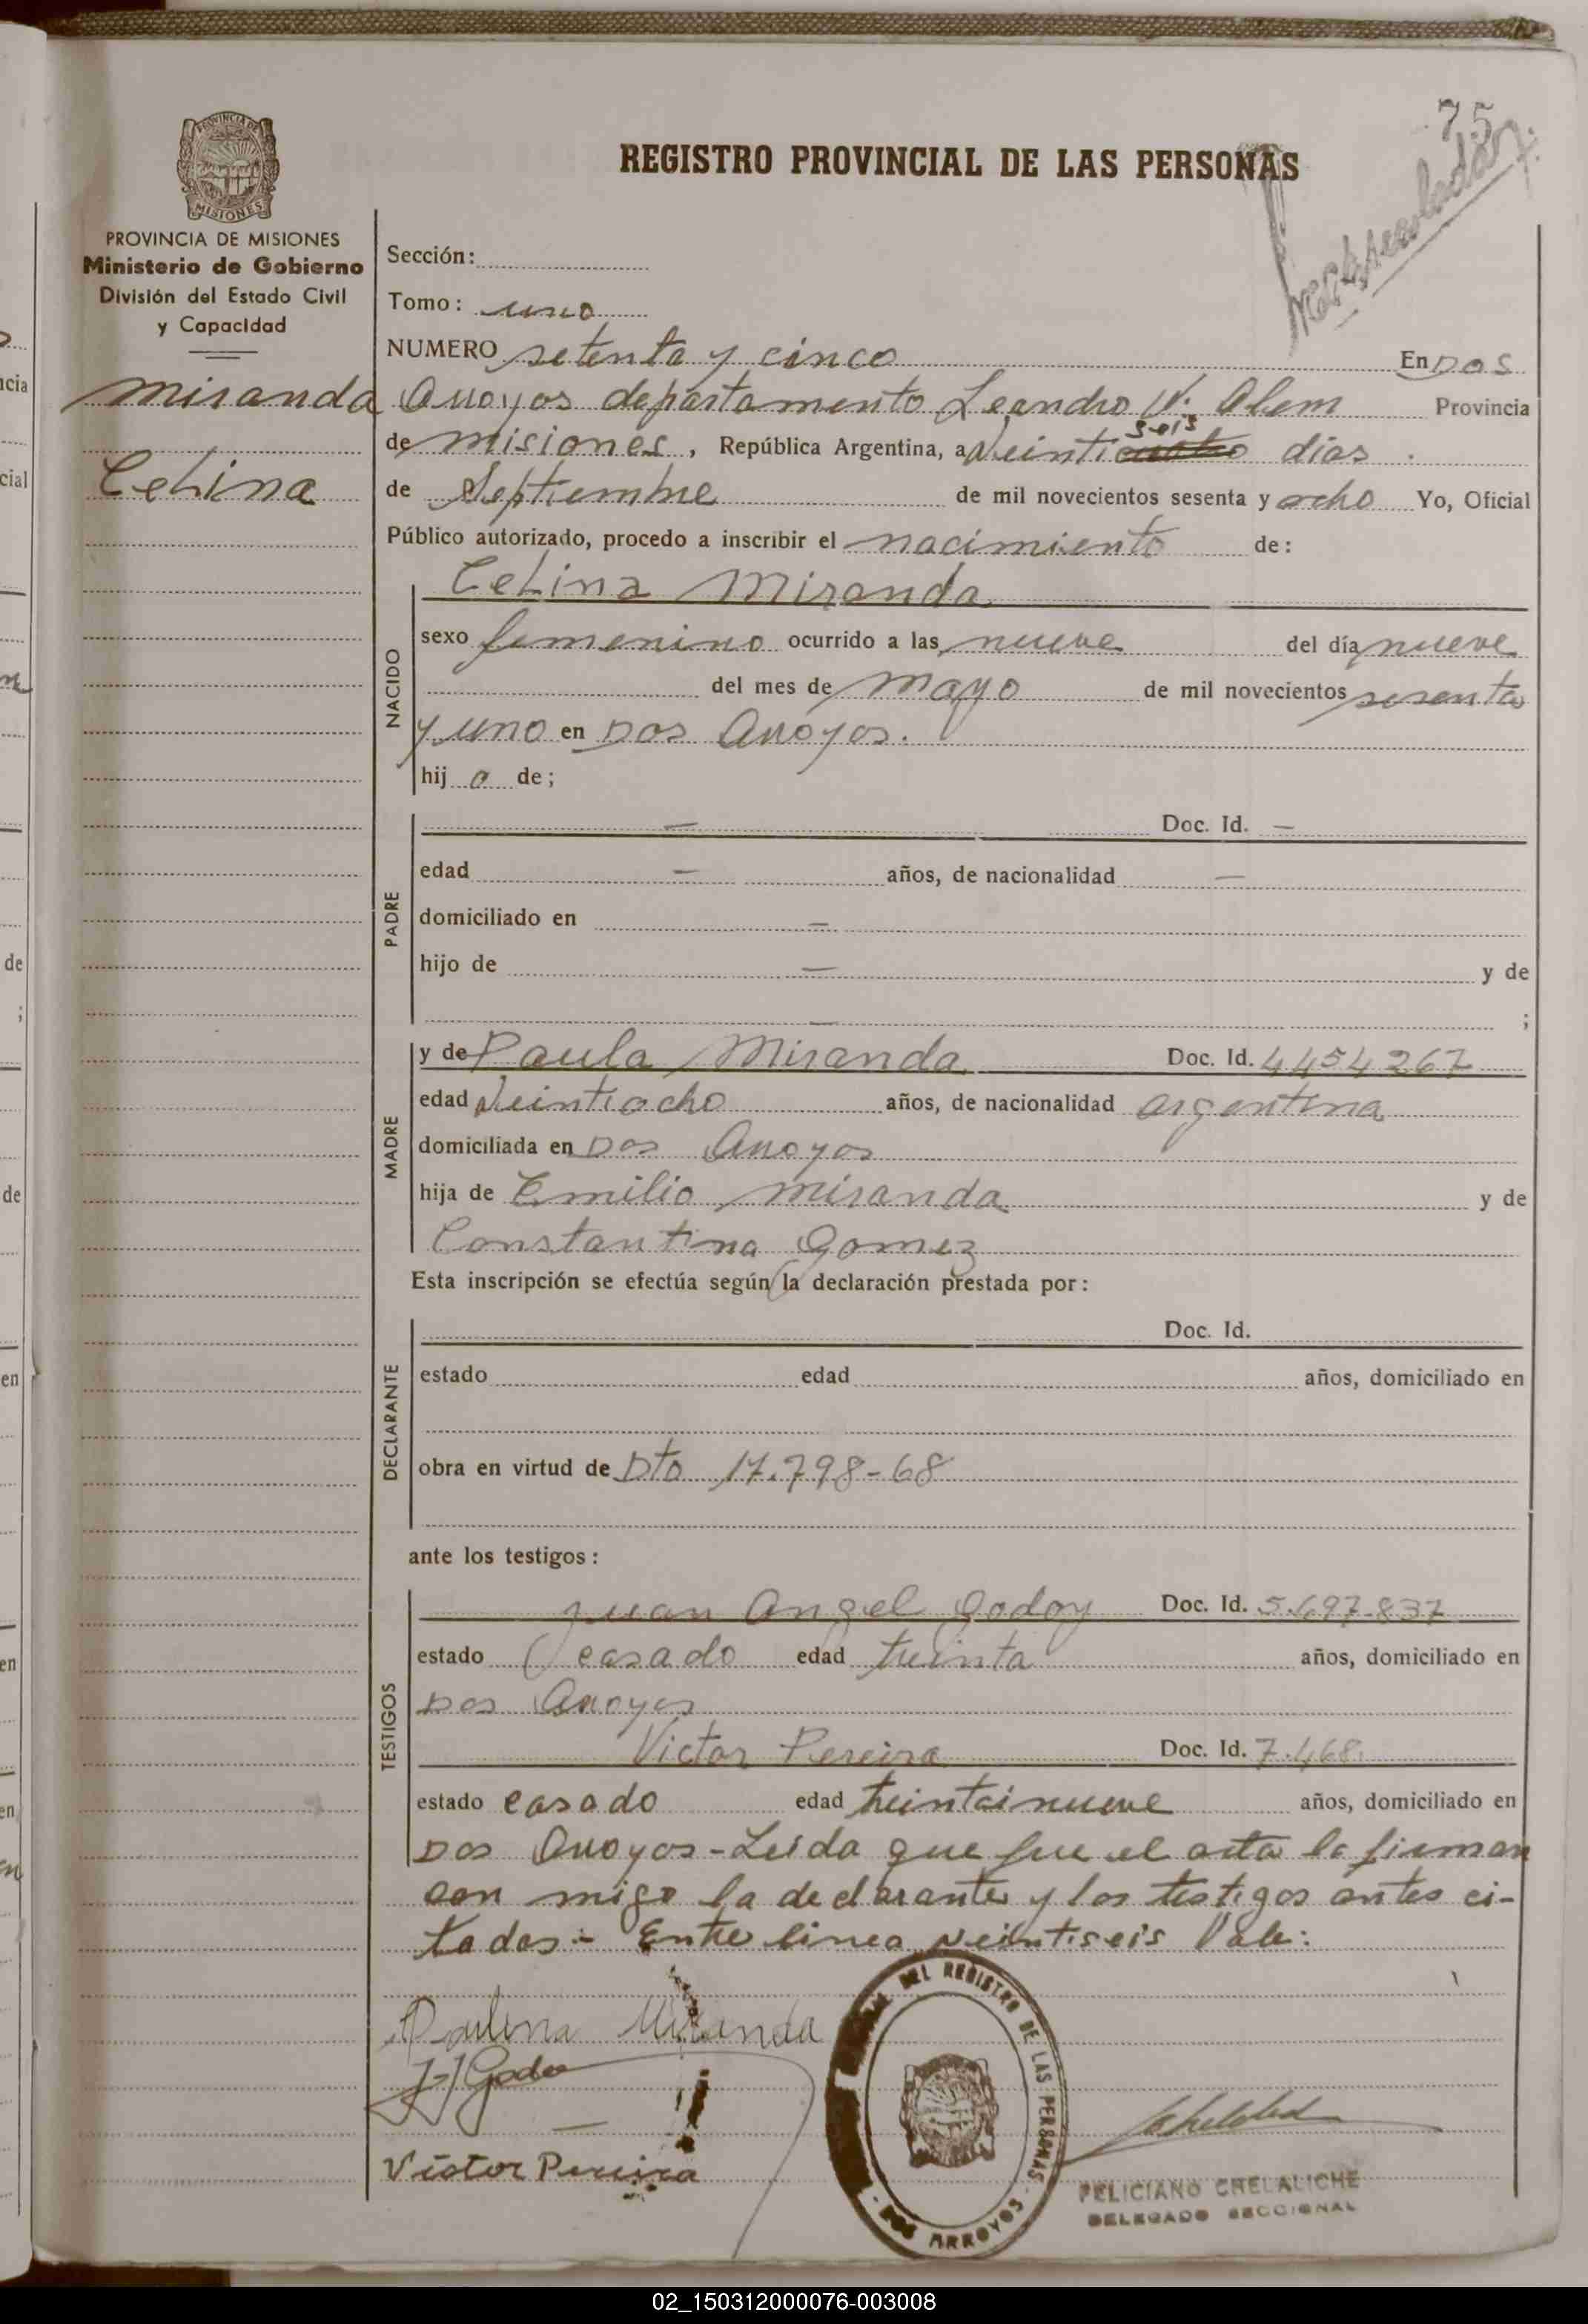 75
REGISTRO PROVINCIAL DE LAS PERSONAS
PROVINCIA DE MISIONES
PROVINCIA DE MISIONES
Ministerio de Gobierno
División del Estado Civil
y Capacidad
Miranda
Celina
Sección:
Tomo: uno
NUMERO setenta y cinco En Dos
Arroyos departamento Leandro N. Alem Provincia
de Misiones, República Argentina, a Veinti seis dias
de Septiembre de mil novecientos sesenta y ocho Yo, Oficial
Público autorizado, procedo a inscribir el nacimiento de:
NACIDO
Celina Miranda
sexo femenino ocurrido a las nueve del día nueve
del mes de mayo de mil novecientos sesenta
y uno en Dos Arroyos.
hij a de;
PADRE
— Doc. Id. —
edad — años, de nacionalidad —
domiciliado en —
hijo de — y de
— ;
MADRE
y de Paula Miranda Doc. Id. 4454267
edad Veintiocho años, de nacionalidad argentina
domiciliada en Dos Arroyos
hija de Emilio Miranda y de
Constantina Gomez
Esta inscripción se efectúa según la declaración prestada por:
DECLARANTE
Doc. Id.
estado edad años, domiciliado en
obra en virtud de Dto 17.798-68
ante los testigos:
TESTIGOS
Juan Angel Godoy Doc. Id. 5.697.837
estado casado edad treinta años, domiciliado en
Dos Arroyos
Victor Pereira Doc. Id. 7.468.
estado casado edad treintainueve años, domiciliado en
Dos Arroyos - Leida que fue el acta la firman
con migo la declarante y los testigos antes ci-
tados:- Entre linea Veintiseis Vale:
Paulina Miranda
Victor Pereira
DEL REGISTRO DE LAS PERSONAS - DOS ARROYOS -
FELICIANO CHELALICHE
DELEGADO SECCIONAL
02_150312000076-003008